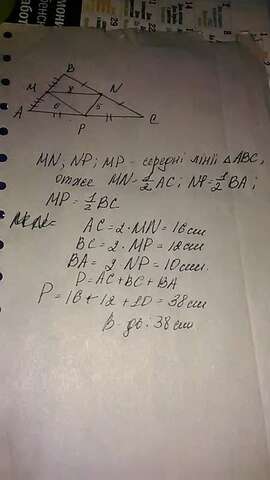 B
M 8 N
A 6 5 C
P
MN; NP; MP - середні лінії △ABC,
отже MN = 1/2 AC; NP = 1/2 BA;
MP = 1/2 BC
AC = 2 · MN = 16 см
BC = 2 · MP = 12 см
BA = 2 NP = 10 см.
P = AC + BC + BA
P = 16 + 12 + 10 = 38 см
В-дь: 38 см